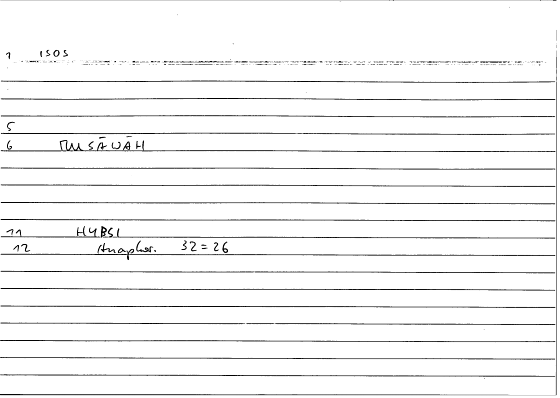 1 ISOS
5
6 MUSĀWĀH
11 HYBSI
12 Anaphor. 32 = 26